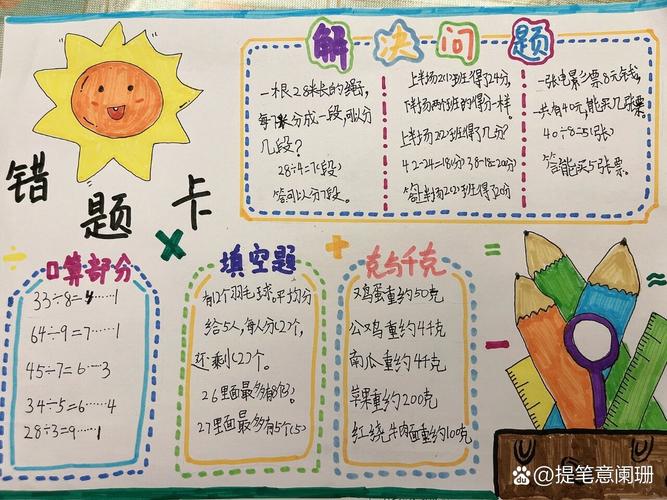 解决问题
一根28米长的绳子,
每7米分成一段,可以分
几段?
28÷4=7(段)
答可以分7段。
上半场2(1)班得了24分,
下半场两个班的得分一样。
上半场2(2)班得了几分?
42-24=18(分) 38-18=20(分)
一张电影票8元钱,
一共有40元,能买几张票
40÷8=5(张)
答能买5张票。
错题卡
口算部分
33÷8=4……1
64÷9=7……1
45÷7=6…3
34÷5=6……4
28÷3=9……1
填空题
有12个羽毛球,平均分
给5人,每人分(2)个,
还剩(2)个。
26里面最多有8个3。
27里面最多有5个(5)
克与千克
又鸟蛋重约50克
公又鸟重约4千克
南瓜重约4千克
苹果重约200克
红烧牛肉面重约100克
@提笔意阑珊